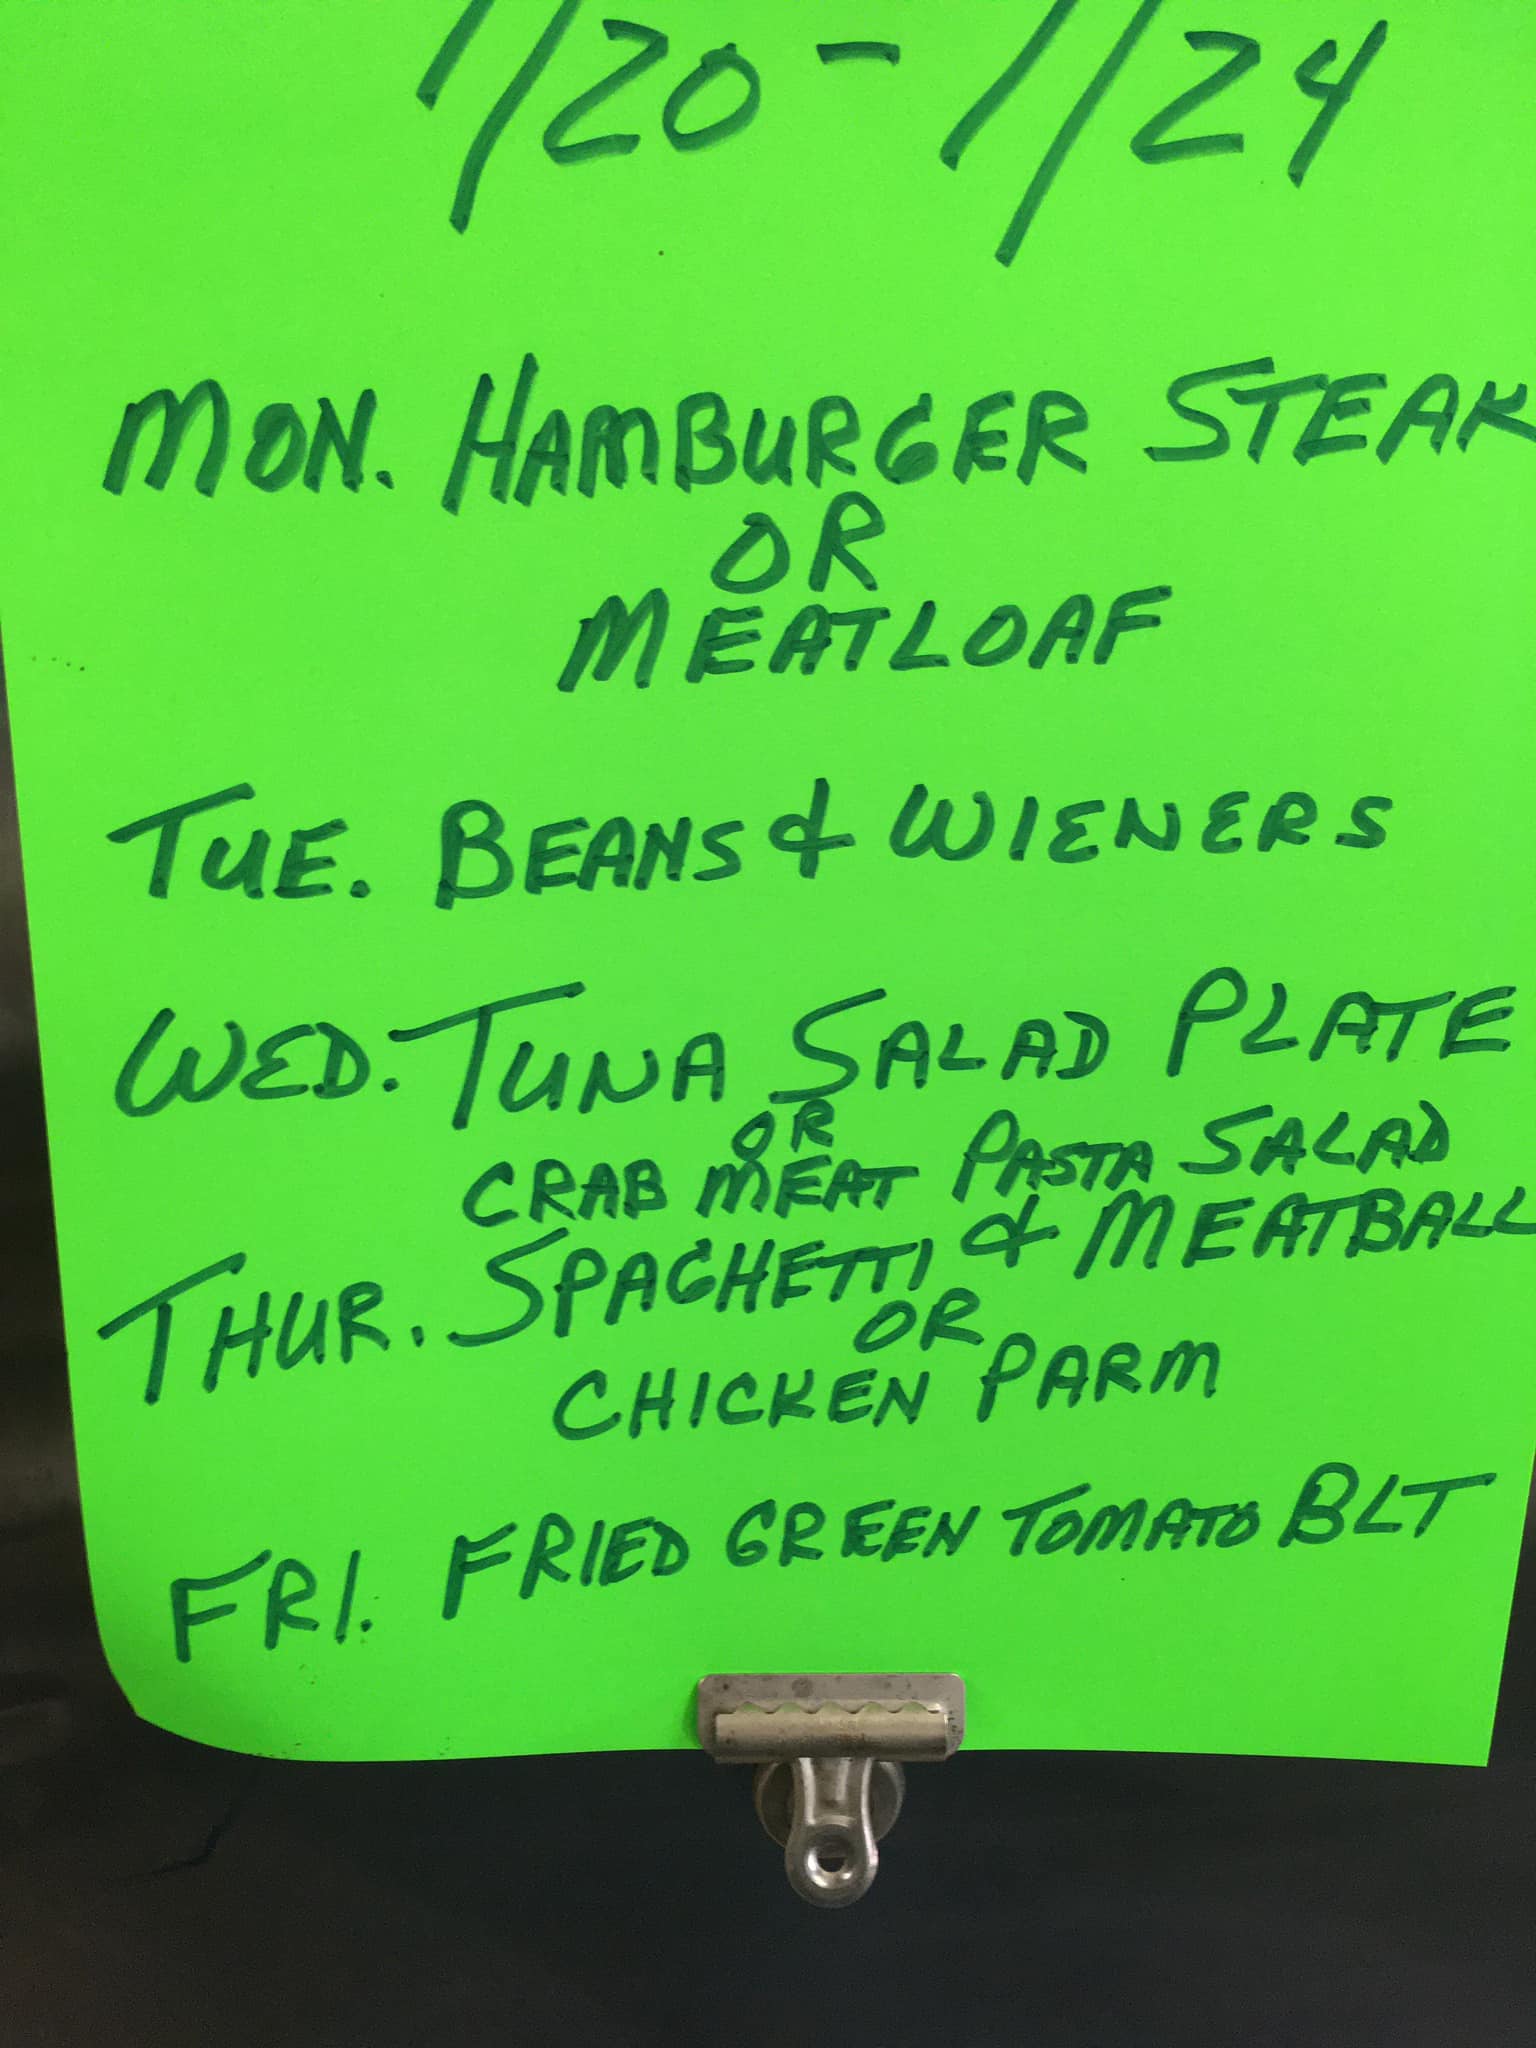 1/20 - 1/24
MON. HAMBURGER STEAK
OR
MEATLOAF
TUE. BEANS & WIENERS
WED. TUNA SALAD PLATE
OR
CRAB MEAT PASTA SALAD
THUR. SPAGHETTI & MEATBALL
OR
CHICKEN PARM
FRI. FRIED GREEN TOMATO BLT